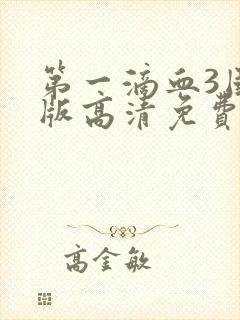 第一滴血3
版高清免费
高金敏